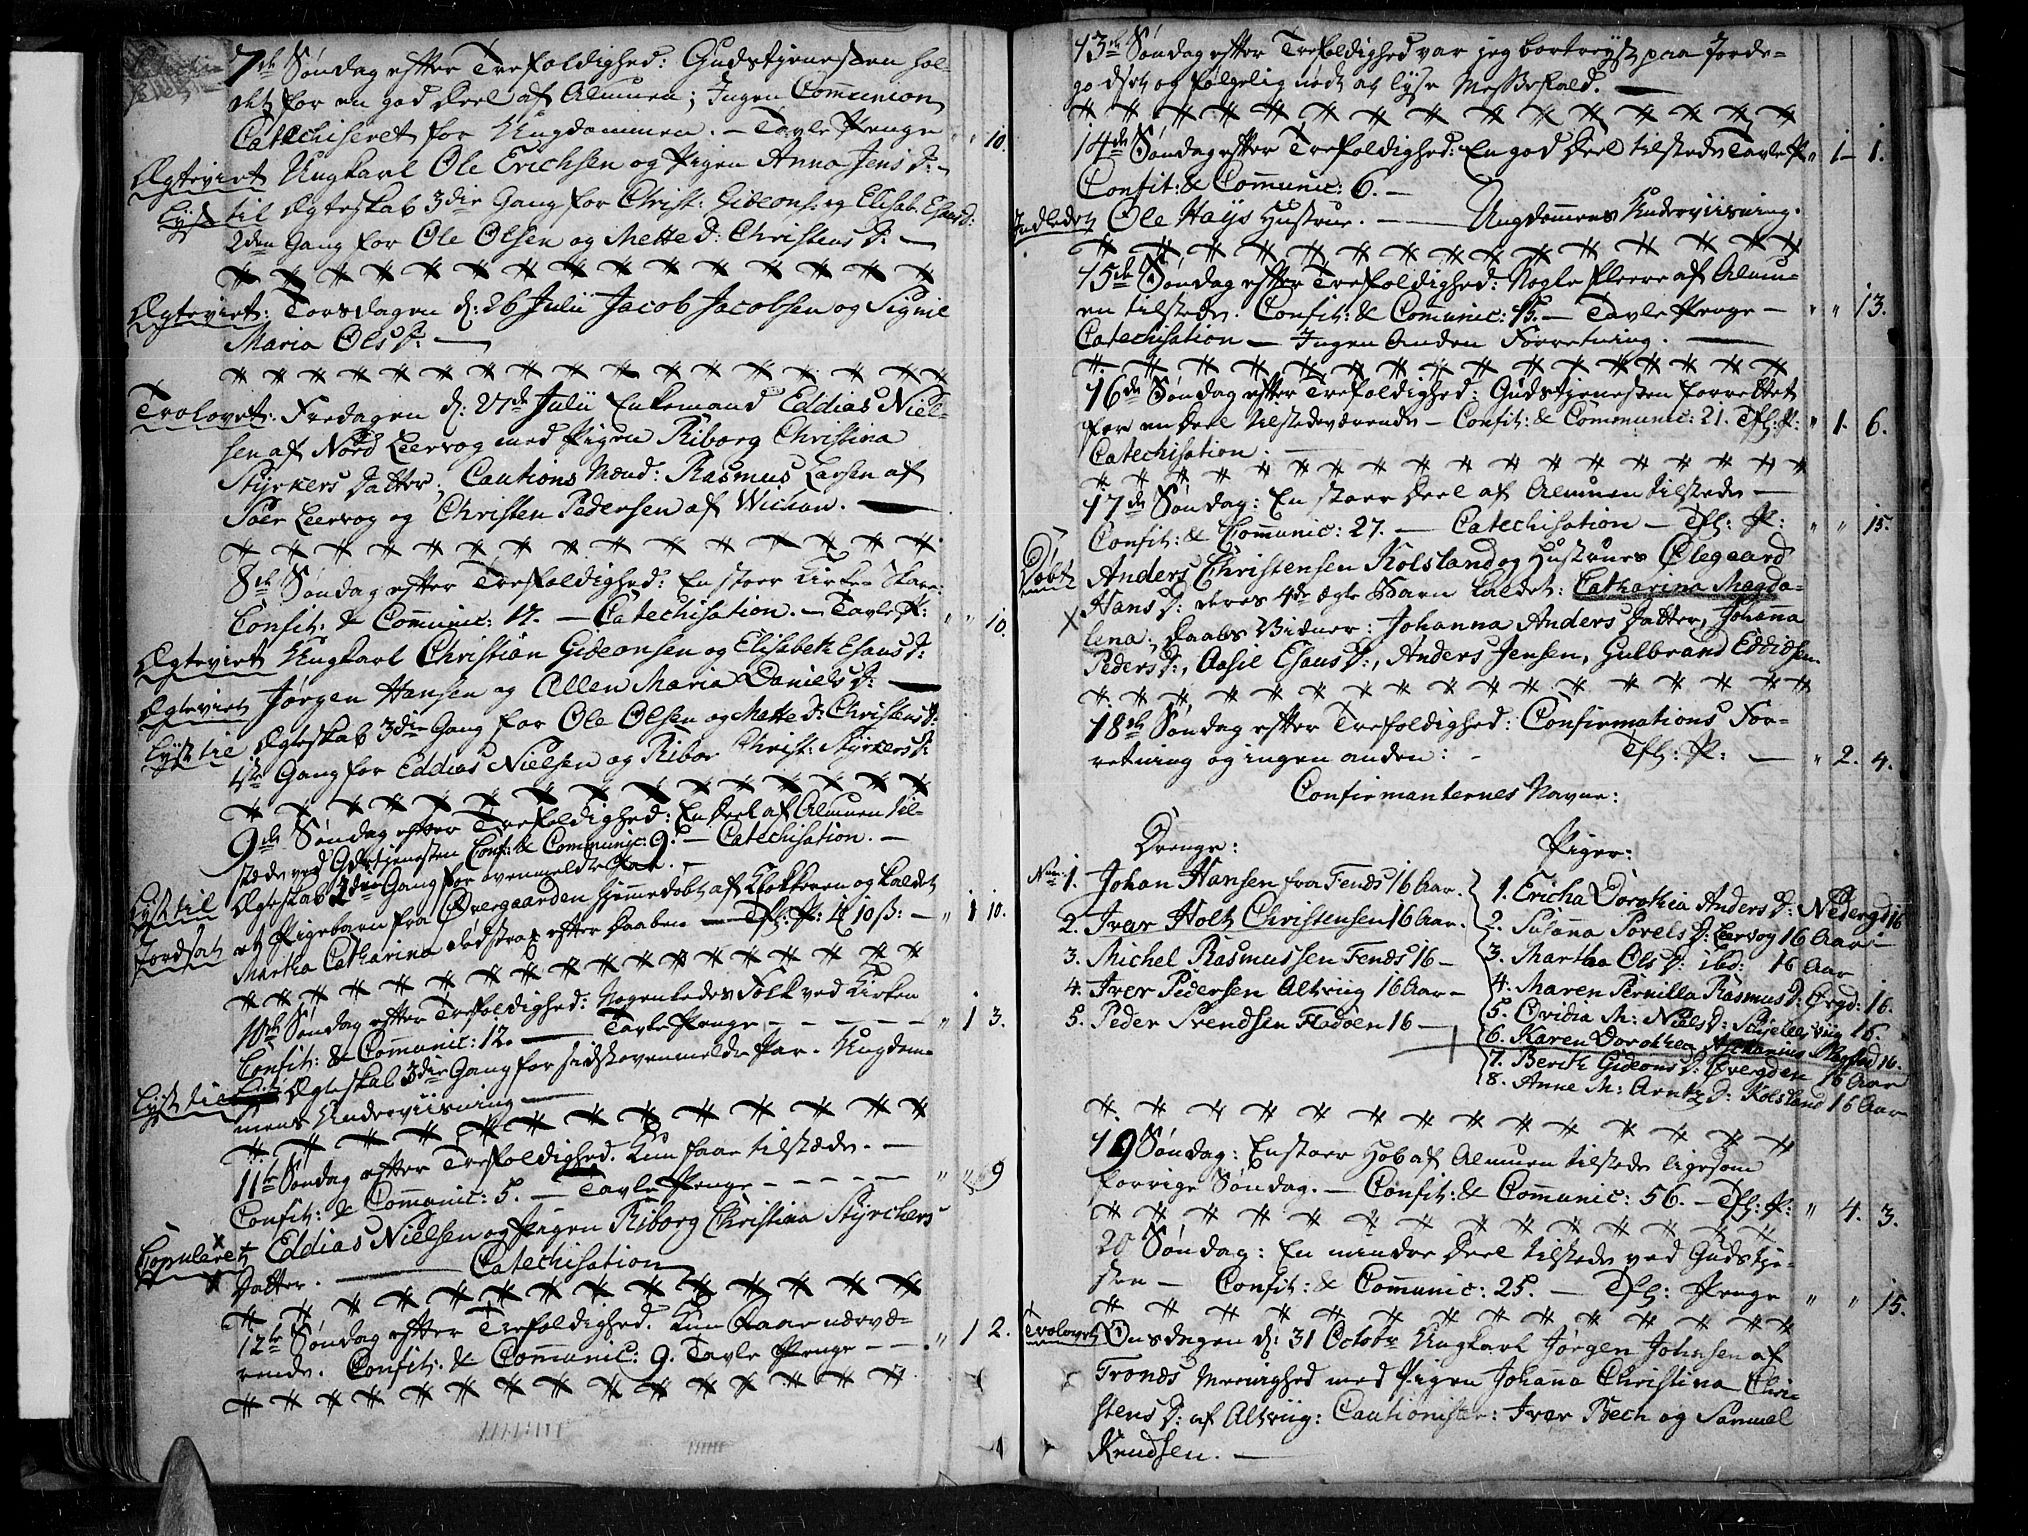 7de Søndag efter Trefoldighed: Gudstjenesten hol-
det for en god Deel af Almuen; Ingen Comunion
Catechiseret for Ungdommen. — Tavle Penge " " 10.
Ægteviet Ungkarl Ole Erichsen og Pigen Anna Jens D: —
Lyst til Ægteskab 3die Gang for Christ: Gideons: og Elisab. Esaus D:
2den Gang for Ole Olsen og Mette D: Christens D: —
Ægteviet: Torsdagen d: 26 Julii Jacob Jacobsen og Signil
Maria Ols D: —
Trolovet: Fredagen d: 27de Julii Enkemand Eddias Niel-
sen af Nord Leervog med Pigen Riborg Christina
Styrkers Datter; Cautions Mænd: Rasmus Larsen af
Søer Leervog og Christen Pedersen af Wichan. —
8de Søndag efter Trefoldighed: En stoer Kirke-Skare
Confit: & Comunic: 17. — Catechisation. — Tavle P: " " 10.
Ægteviet Ungkarl Christian Gideonsen og Elisabeth Esaus D:
Ægteviet Jørgen Hansen og Allen Maria Daniels D: —
Lyst til Ægteskab 3die Gang for Ole Olsen og Mette D: Christens D:
1ste Gang for Eddias Nielsen og Ribor Christ: Styrkers D:
9de Søndag efter Trefoldighed: En Deel af Almuen til-
stæde ved Gdstjenesten Conf: & Communic: 9. — Catechisation. —
Lyst til Ægteskab 2den Gang for ovenmeldte Par. —
Jordsat et Pigebarn fra Øvergaarden hjemmedøbt af Klokkeren og kaldet
Martha Catharina død strax efter Daaben — Tfl: P: 10 ß: — " 1 10.
10de Søndag efter Trefoldighed: Nogenledes Folk ved Kirken
Confit: & Communic: 12. — Tavle Penge - - - - - " 1 3.
Lyst til Ægteskab 3die Gang for sidstovenmeldte Par. Ungdom-
mens Underviisning —
11te Søndag efter Trefoldighed. Kun faae tilstæde. —
Confit: & Comunic: 5. — Tavle Penge - - - - - " " 9
Copuleret Eddias Nielsen og Pigen Riborg Christina Styrchers
Datter. — Catechisation
12te Søndag efter Trefoldighed. Kun faae nærvæ-
rende. Confit: & Comunic: 9. Tavle Penge - - . " 1 2.
13de Søndag efter Trefoldighed var jeg bortreyst paa Jorde-
godset og følgelig nødt at lyse Messefald. —
14de Søndag efter Trefoldighed: En god Deel tilstede Tavle P " 1 - 1.
Confit: & Comunic: 6. —
Indledet Ole Hays Hustrue. — Ungdomens Underviisning.
15de Søndag efter Trefoldighed: Nogle fleere af Almu-
en tilstede. Confit: & Comunic: 15. — Tavle Penge — " " 13.
Catechisation — Ingen anden Forretning. —
16de Søndag efter Trefoldighed: Gudstjenesten forrettet
for en Deel tilstedeværende — Confit: & Communic: 21. Tfl: P: " 1. 6.
Catechisation. —
17de Søndag: En stoer Deel af Almuen tilstede —
Confit: & Comunic: 27. — Catechisation — Tfl: P: " " 15.
Døbt Anders Christensen Kolsland og Hustrues Olegaard
Hans D: deres 4de ægte Barn kaldet: Catharina Magda-
lena; Daabs Vidner: Johanna Anders Datter, Johanna
Peders D:, Aasil Esaus D:, Anders Jensen, Gulbrand Eddidsen
18de Søndag efter Trefoldighed: Confirmations For-
retning og ingen anden: - Tfl: P: — " 2. 4.
Confirmanternes Navne:
Drenge: Piger:
Num: 1. Johan Hansen fra Fends 16 Aar.
2. Iver Holtz Christensen 16 Aar.
3. Michel Rasmussen Fends 16 —
4. Iver Pedersen Altviig 16 Aar —
5. Peder Svendsen Fladøen 16 —
1. Ericha Dorothea Anders D: Nedergd 16
2. Susanna Sorels D: Leervog 16 Aar —
3. Martha Ols D: ibd: 16 Aar
4. Maren Pernilla Rasmus D: Øvgd: 16.
5. Ovidia M: Niels D: 16.
6. Karen Dorothea 16.
7. Berith Gideons D: Øvergden 16 Aar
8. Anne M: Arntz D: Kolsland 16 Aar
19 Søndag: En stoer Hob af Almuen tilstede ligesom
forrige Søndag. — Confit: & Comunic: 56. — Tfl: P: " 4. 3.
20 Søndag: En mindre Deel tilstede ved Gudstje-
sten — Confit: & Comunic: 25. — Tfl: Penge " " 15.
Trolovet Onsdagen d: 31 Octobr Ungkarl Jørgen Johnsen af
Tronds Menighed med Pigen Johanna Christina Chri-
stens D: af Altviig: Cautionister: Iver Bech og Samuel
Knudsen. —